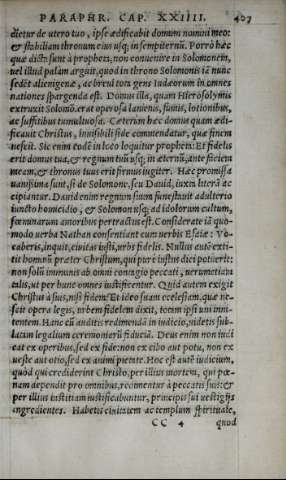 PARAPHR. CAP. XXIIII. 407
dietur de utero tuo, ipse ædificabit domum nomini meo:
& stabiliam thronum eius usq; in sempiternū. Porrò hæc
quæ dicta sunt à prophetis, non convenire in Solomonem,
vel illud palam arguit, quod in throno Solomonis iā nunc
sedet alienigena, ac brevi tota gens Iudæorum in omnes
nationes spargenda est. Domus illa, quam Hierosolymis
extruxit Solomō, erat operosa lanienis, fumis, lotionibus,
ac suffitibus tumultuosa. Cæterùm hæc domus quam ædi-
ficavit Christus, invisibili fide commendatur, quæ finem
nescit. Sic enim eodē in loco loquitur propheta: Et fidelis
erit domus tua, & regnum tuū usq; in æternū, ante faciem
meam, & thronus tuus erit firmus iugiter. Hæc promissa
vanissima sunt, si de Solomone, seu David, iuxta literā ac
cipiantur. Davidenim regnum suum funestavit adulterio
iuncto homicidio, & Solomon usq; ad idolorum cultum,
fœminarum amoribus pertractus est. Considerate iā quo-
modo verba Nathan consentiant cum verbis Esaiæ: Vo-
caberis, inquit, civitas iusti, urbs fidelis. Nullus autē exti-
tit hominū præter Christum, qui purè iustus dici potuerit:
non solū immunis ab omni contagio peccati, verumetiam
talis, ut per hunc omnes iustificentur. Quid autem exigit
Christus à suis, nisi fidem? Et ideo suam ecclesiam, quæ ne-
scit opera legis, urbem fidelem dixit, totam ipsi uni inni-
tentem. Hanc cū audītis redimendā in iudicio, videtis sub-
latam legalium ceremoniarū fiduciā. Deus enim non iudi
cat ex operibus, sed ex fide: non ex cibo aut potu, non ex
veste aut otio, sed ex animi pietate. Hoc est autē iudicium,
quòd qui crediderint Christo, per illius mortem, qui pœ-
nam dependit pro omnibus, redimentur à peccatis suis: &
per illius iustitiam iustificabuntur, præcipuè si vestigijs
ingredientes. Habetis civitatem ac templum spirituale,
CC 4 quod